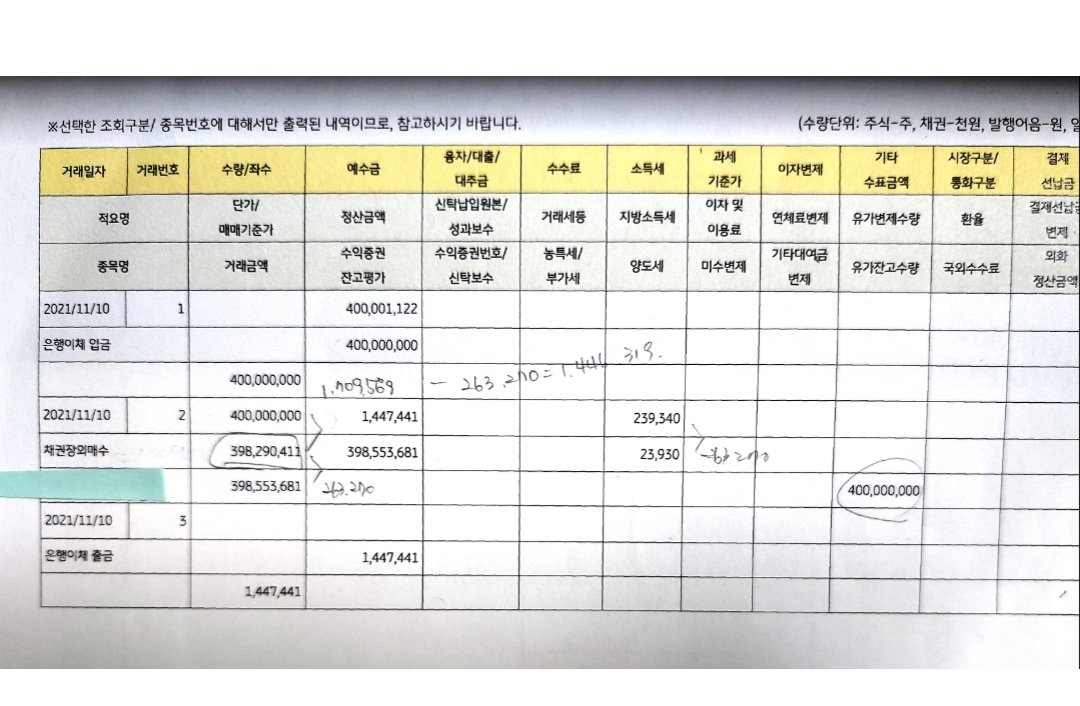 ※선택한 조회구분/ 종목번호에 대해서만 출력된 내역이므로, 참고하시기 바랍니다. (수량단위: 주식-주, 채권-천원, 발행어음-원,
거래일자 거래번호 수량/좌수 예수금 융자/대출/ 대주금 수수료 소득세 과세 기준가 이자변제 기타 수표금액 시장구분/ 통화구분 결제 선납금
적요명 단가/ 매매기준가 정산금액 신탁납입원본/ 성과보수 거래세등 지방소득세 이자 및 이용료 연체료변제 유가변제수량 환율 결제선납금 변제
종목명 거래금액 수익증권 잔고평가 수익증권번호/ 신탁보수 농특세/ 부가세 양도세 미수변제 기타대여금 변제 유가잔고수량 국외수수료 외화 정산금액
2021/11/10 1 400,001,122
은행이체 입금 400,000,000
400,000,000 1.709,589 - 263.270 = 1.446.319.
2021/11/10 2 400,000,000 1,447,441 239,340
채권장외매수 398,290,411 398,553,681 23,930 263270
398,553,681 263.270 400,000,000
2021/11/10 3
은행이체 출금 1,447,441
1,447,441